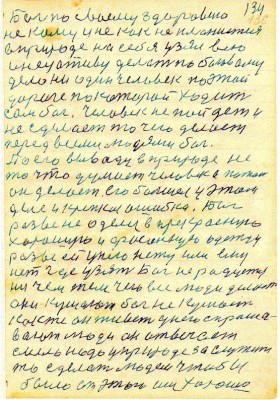 134
Бог по своему здоровию
не кому и не как не платится
в природе на себя узял всю
инециативу делать по божиому
дело ни один человек по этой
дороге по которой ходит
сам бог. Человек не пойдет и
не сделает то чего делает
перед всеми людями бог.
По его выводу в природе не
то что думает человек а потом
он делает его большая у этом
деле и крепкая ошибка. Бог
разве не одел в прекрасную
хорошую и фасонную одежду
разве ей у него нету или ему
нет где узять Бог не радует
ни чем тем чего все люди делают
они кушают бог не кушает
как же он живет у него спраши
вают люди он отвечает
смело надо у природе заслужить
то сделать людей чтобы
было от этого им хорошо